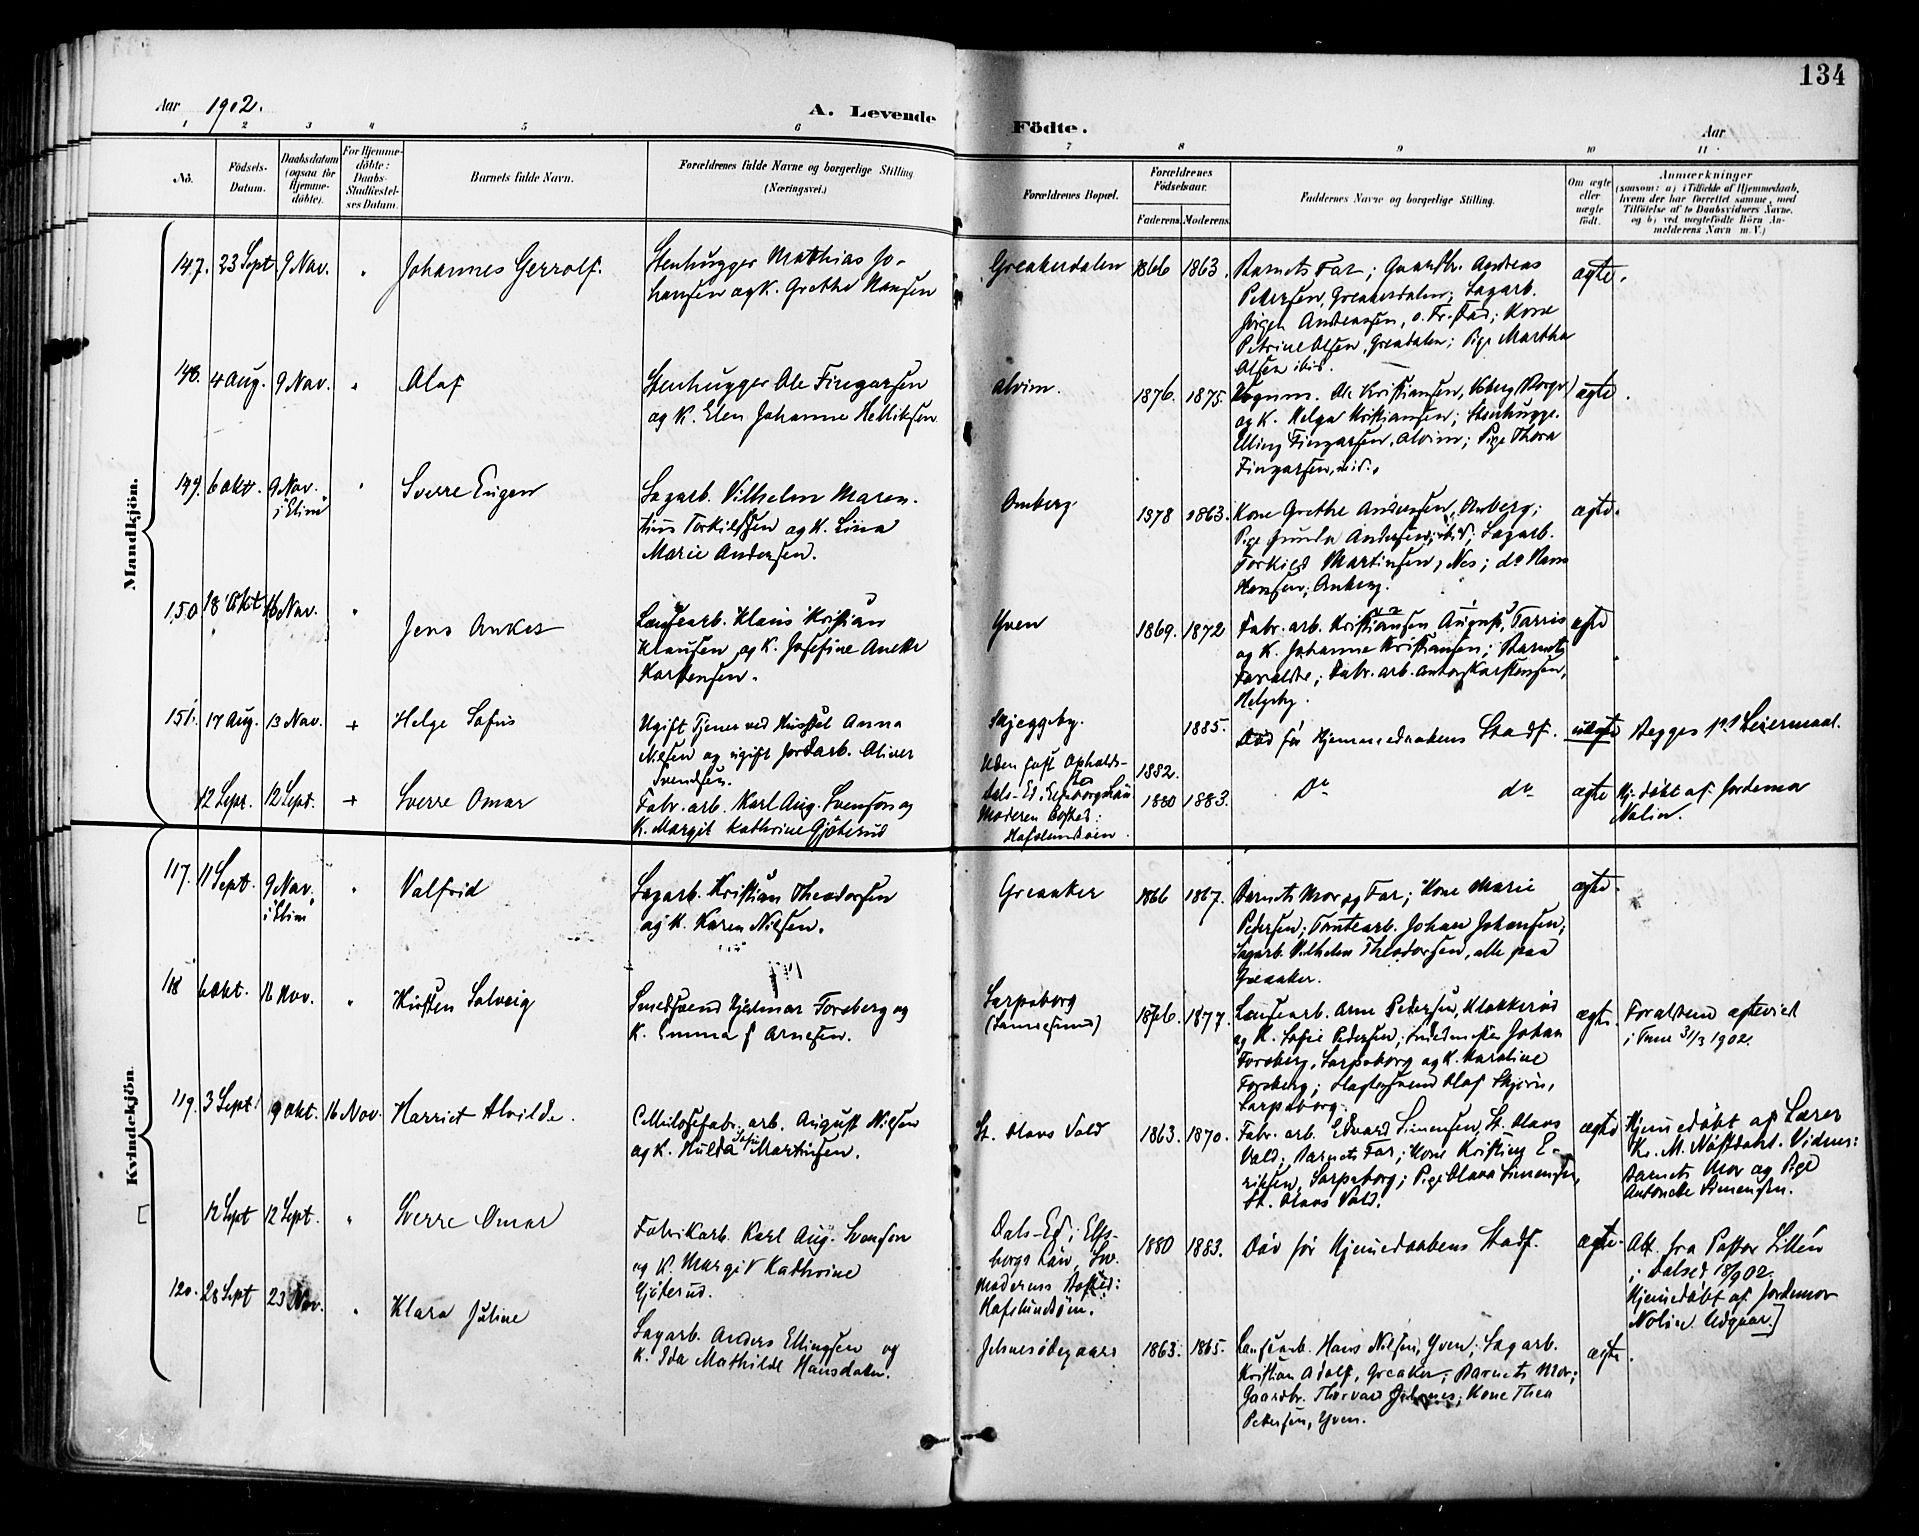 134
Aar 1902.
A. Levende
Födte.
Aar
1 2 3 4 5 6 7 8 9 10 11
No.
Födsels-Datum.
Daabsdatum (ogsaa for Hjemmedöbte).
For Hjemmedöbte: Daabs-Stadfæstelses Datum.
Barnets fulde Navn.
Forældrenes fulde Navne og borgerlige Stilling (Næringsvei.)
Forældrenes Bopæl.
Forældrenes Födselsaar.
Faderens. Moderens.
Faddernes Navne og borgerlige Stilling.
Om ægte eller uægte født.
Anmærkninger
(saasom: a) i Tilfælde af Hjemmedaab,
hvem der har forrettet samme, med
Tilföielse af to Daabsvidners Navne,
og b) ved uægtefödte Börn An-
melderens Navn m. V.)
Mandkjön.
147. 23 Sept 9 Nov. " Johannes Gerrolf.
Stenhugger Matthias Jo-
hansen og K. Grethe Hansen
Greakerdalen 1866 1863.
Barnets Far; Gaardbr. Andreas
Petersen, Greakerdalen; Sagarb.
Jörgen Andreassen, o. Fr.stad; Kone
Petrine Olsen, Greadalen; Pige Martha
Olsen ibid.
ægte.
148. 4 Aug. 9 Nov. " Olaf
Stenhugger Ole Fingarsen
og K. Elen Johanne Kellilsen
Alvim. 1876. 1875.
Vognm. Ole Kristiansen, Isberg (Borge)
og K. Helga Kristiansen; Stenhugge.
Elling Fingarsen, Alvim; Pige Thora
Fingarsen, ibid.
ægte.
149. 6 Okt. 9 Nov. i "Elim" " Sverre Eugen
Sagarb. Vilhelm Maren-
tius Torkildsen og K. Lina
Marie Andersen.
Omberg. 1878 1863.
Kone Grethe Andersen, Omberg;
Pige Gunda Andersen, ibid; Sagarb.
Torkild Martinsen, Nes; do Hans
Hansen, Omberg.
ægte.
150 18 Okt 16 Nov. " Jens Anker
Løusearb. Klaus Kristian
Klausen og K. Josefine Aneke
Karstensen.
Yven 1869. 1872
Fabr. arb. Kristiansen August, Torris
og K. Johanne Kristiansen; Barnets
Forældre; Fabr. arb. Anton Karstensen,
Helgeby.
ægte
151. 17 Aug. 13 Nov. + Helge Sofus
Ugift Tjener ved Husstel Anna
Nilsen og ugift Jordarb. Oliver
Svendsen.
Skjeggeby.
Uden fast Opholds-
sted
1885. 1882.
Död før Hjemmedaabens Stadf.
uægte Begges 1ste Leiermaal.
12 Sept. 12 Sept. + Sverre Omar
Fabr. arb. Karl Aug. Svenson og
K. Margit Kathrine Gjöterud
Dals-Ed, Elfsborgs Län
Moderen Bosted:
Hafslundsöen.
1880 1883.
Do do ægte
Hj. döbt af Jordemor
Nolin.
Kvindekjön
117. 11 Sept. 9 Nov. i "Elim" " Valfrid
Sagarb. Kristian Theodorsen
og K. Karen Nilsen.
Greaaker 1866 1867.
Barnets Mor og Far; Kone Marie
Pedersen; Tomtearb. Johan Johansen;
Sagarb. Vilhelm Theodorsen, alle paa
Greaaker.
ægte.
118 6 Okt. 16 Nov. " Kirsten Solveig
Smedsvend Hjalmar Forsberg og
K. Emma f Arnesen.
Sarpsborg
(Sannesund)
1876. 1877.
Løusearb. Arne Pedersen, Klokkerød
og K. Sofie Pedersen; Smedmester Johan
Forsberg, Sarpsborg og K. Karoline
Forsberg; Slagtersvend Olaf Skjørn,
Sarpsborg.
ægte.
Forældrene ægteviet
i Tune 31/3 1902.
119. 3 Sept. 19 Okt. 16 Nov. Harriet Alvilde.
Cellulosefabr. arb. August Nilsen
og K. Hulda Sofie Martinsen.
St. Olavs Vold 1863. 1870.
Fabr. arb. Edvard Simensen, St. Olavs
Vold; Barnets Far; Kone Kristine E-
riksen, Sarpsborg; Pige Olava Simensen,
St. Olavs Vold.
ægte
Hjemmedöbt af Lærer
Kr. M. Nöstdahl. Vidner:
Barnets Mor og Pige
Antonette Simensen.
[ 12 Sept 12 Sept. " Sverre Omar
Fabrikarb. Karl Aug. Svenson
og K. Margit Kathrine
Gjöterud.
Dals-Ed; Elfs-
borgs Län, Sv.
Moderens Bosted:
Hafslundsöen.
1880 1883.
Död før Hjemmedaabens Stadf.
ægte.
Att. fra Pastor Lillén
i Dalsed 18/9 02.
Hjemmedöbt af Jordemor
Nolin Udgaar.]
120. 28 Sept 23 Nov. " Klara Juline
Sagarb. Anders Ellingsen og
K. Ida Mathilde Hansdater.
Jelsnesødegaard 1863. 1865.
Løusearb. Hans Nilsen, Yven; Sagarb.
Kristian Adolf, Greaker; Barnets Mor;
Gaardbr. Thorvard Jelsnes; Kone Thea
Petersen, Yven.
ægte.